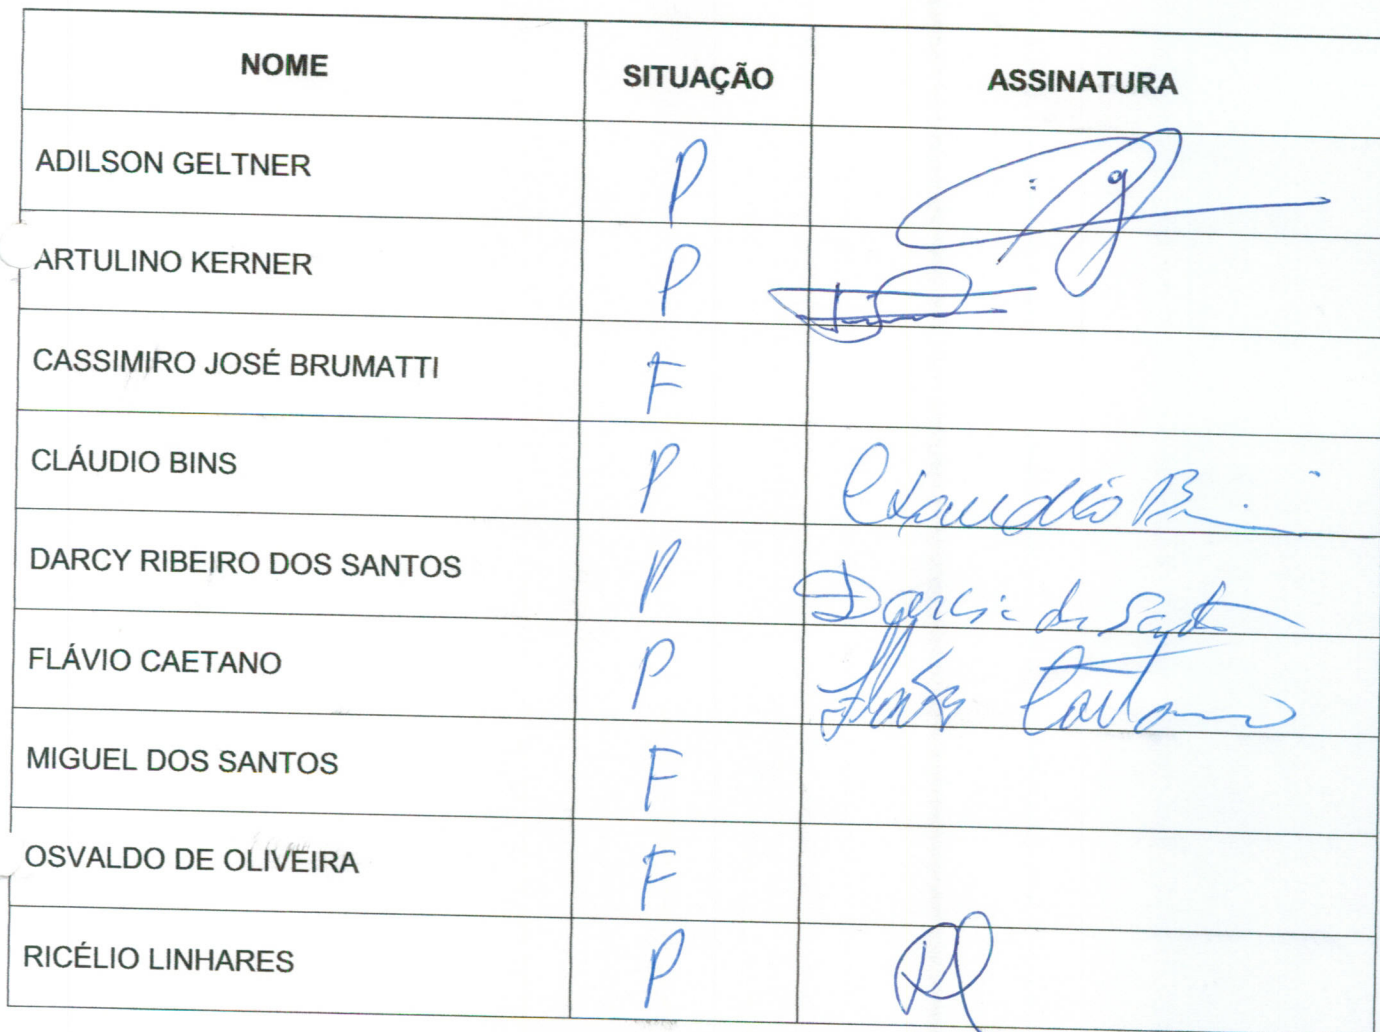 NOME SITUAÇÃO ASSINATURA
ADILSON GELTNER P
ARTULINO KERNER P
CASSIMIRO JOSÉ BRUMATTI F
CLÁUDIO BINS P Claudio B
DARCY RIBEIRO DOS SANTOS P
FLÁVIO CAETANO P Flávio Caetano
MIGUEL DOS SANTOS F
OSVALDO DE OLIVEIRA F
RICÉLIO LINHARES P